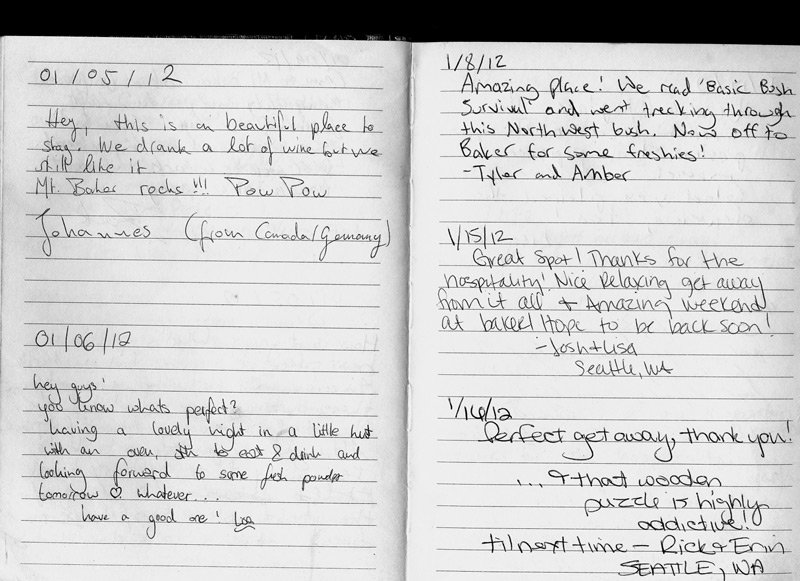 01/05/12
Hey, this is an beautiful place to
stay. We drank a lot of wine but we
still like it
Mt. Baker rocks!!! Pow Pow
Johannes (from Canada/Germany)
01/06/12
hey guys!
you know whats perfect?
having a lovely night in a little hut
with an oven, to eat & drink and
looking forward to some fresh powder
tomorrow ♡ whatever...
have a good one!
1/8/12
Amazing place! We read 'Basic Bush
Survival' and went trecking through
this North West bush. Now off to
Baker for some freshies!
-Tyler and Amber
1/15/12
Great Spot! Thanks for the
hospitality! Nice Relaxing get away
from it all & Amazing weekend
at baker! Hope to be back soon!
-Josh + Lisa
Seattle, WA
1/16/12
Perfect get away, thank you!
...& that wooden
puzzle is highly
addictive!
til next time - Rick & Erin
SEATTLE, WA